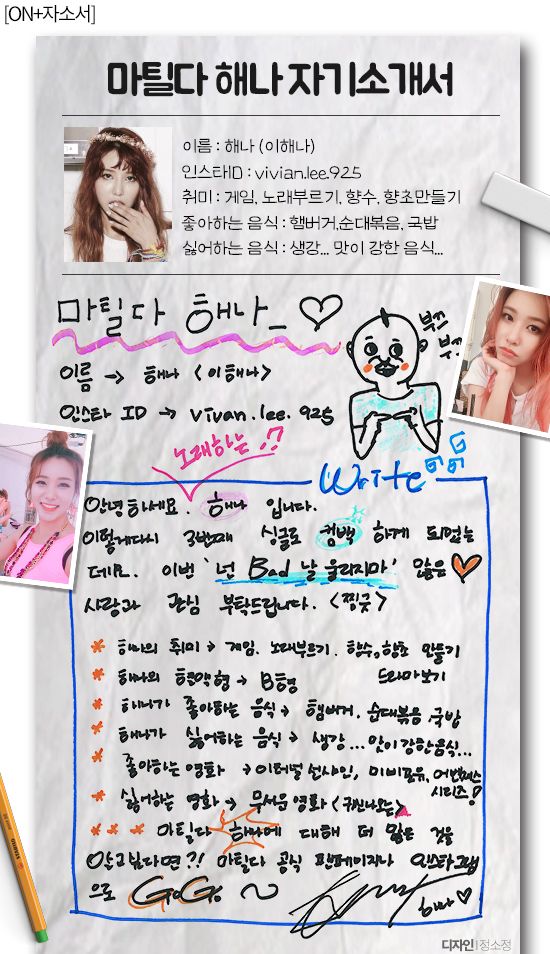 [ON+자소서]
마틸다 해나 자기소개서
이름 : 해나 (이해나)
인스타ID : vivian.lee.925
취미 : 게임, 노래부르기, 향수, 향초만들기
좋아하는 음식 : 햄버거,순대볶음, 국밥
싫어하는 음식 : 생강... 맛이 강한 음식...
마틸다 해나_ ♡
부쓰
부쓰
이름 → 해나 <이해나>
인스타 ID → vivan.lee.925
노래하는!?
Write
안녕하세요. 해나 입니다.
이렇게다시 3번째 싱글로 컴백 하게 되었는
데요. 이번 '넌 Bad 날 울리지마' 많은 ♡
사랑과 관심 부탁드립니다. <찡긋>
* 해나의 취미 → 게임. 노래부르기. 향수, 향초 만들기
드라마보기
* 해나의 혈액형 → B형
* 해나가 좋아하는 음식 → 햄버거. 순대볶음. 국밥
* 해나가 싫어하는 음식 → 생강...맛이강한음식...
* 좋아하는 영화 → 이터널 선샤인, 미비포유, 어벤져스
시리즈!
* 싫어하는 영화 → 무서운 영화 <귀신나오는>
* * * 마틸다 해나에 대해 더 많은 것을
알고싶다면?! 마틸다 공식 팬페이지나 인스타그램
으로 GoGo ~
해나 ♡
디자인|정소정